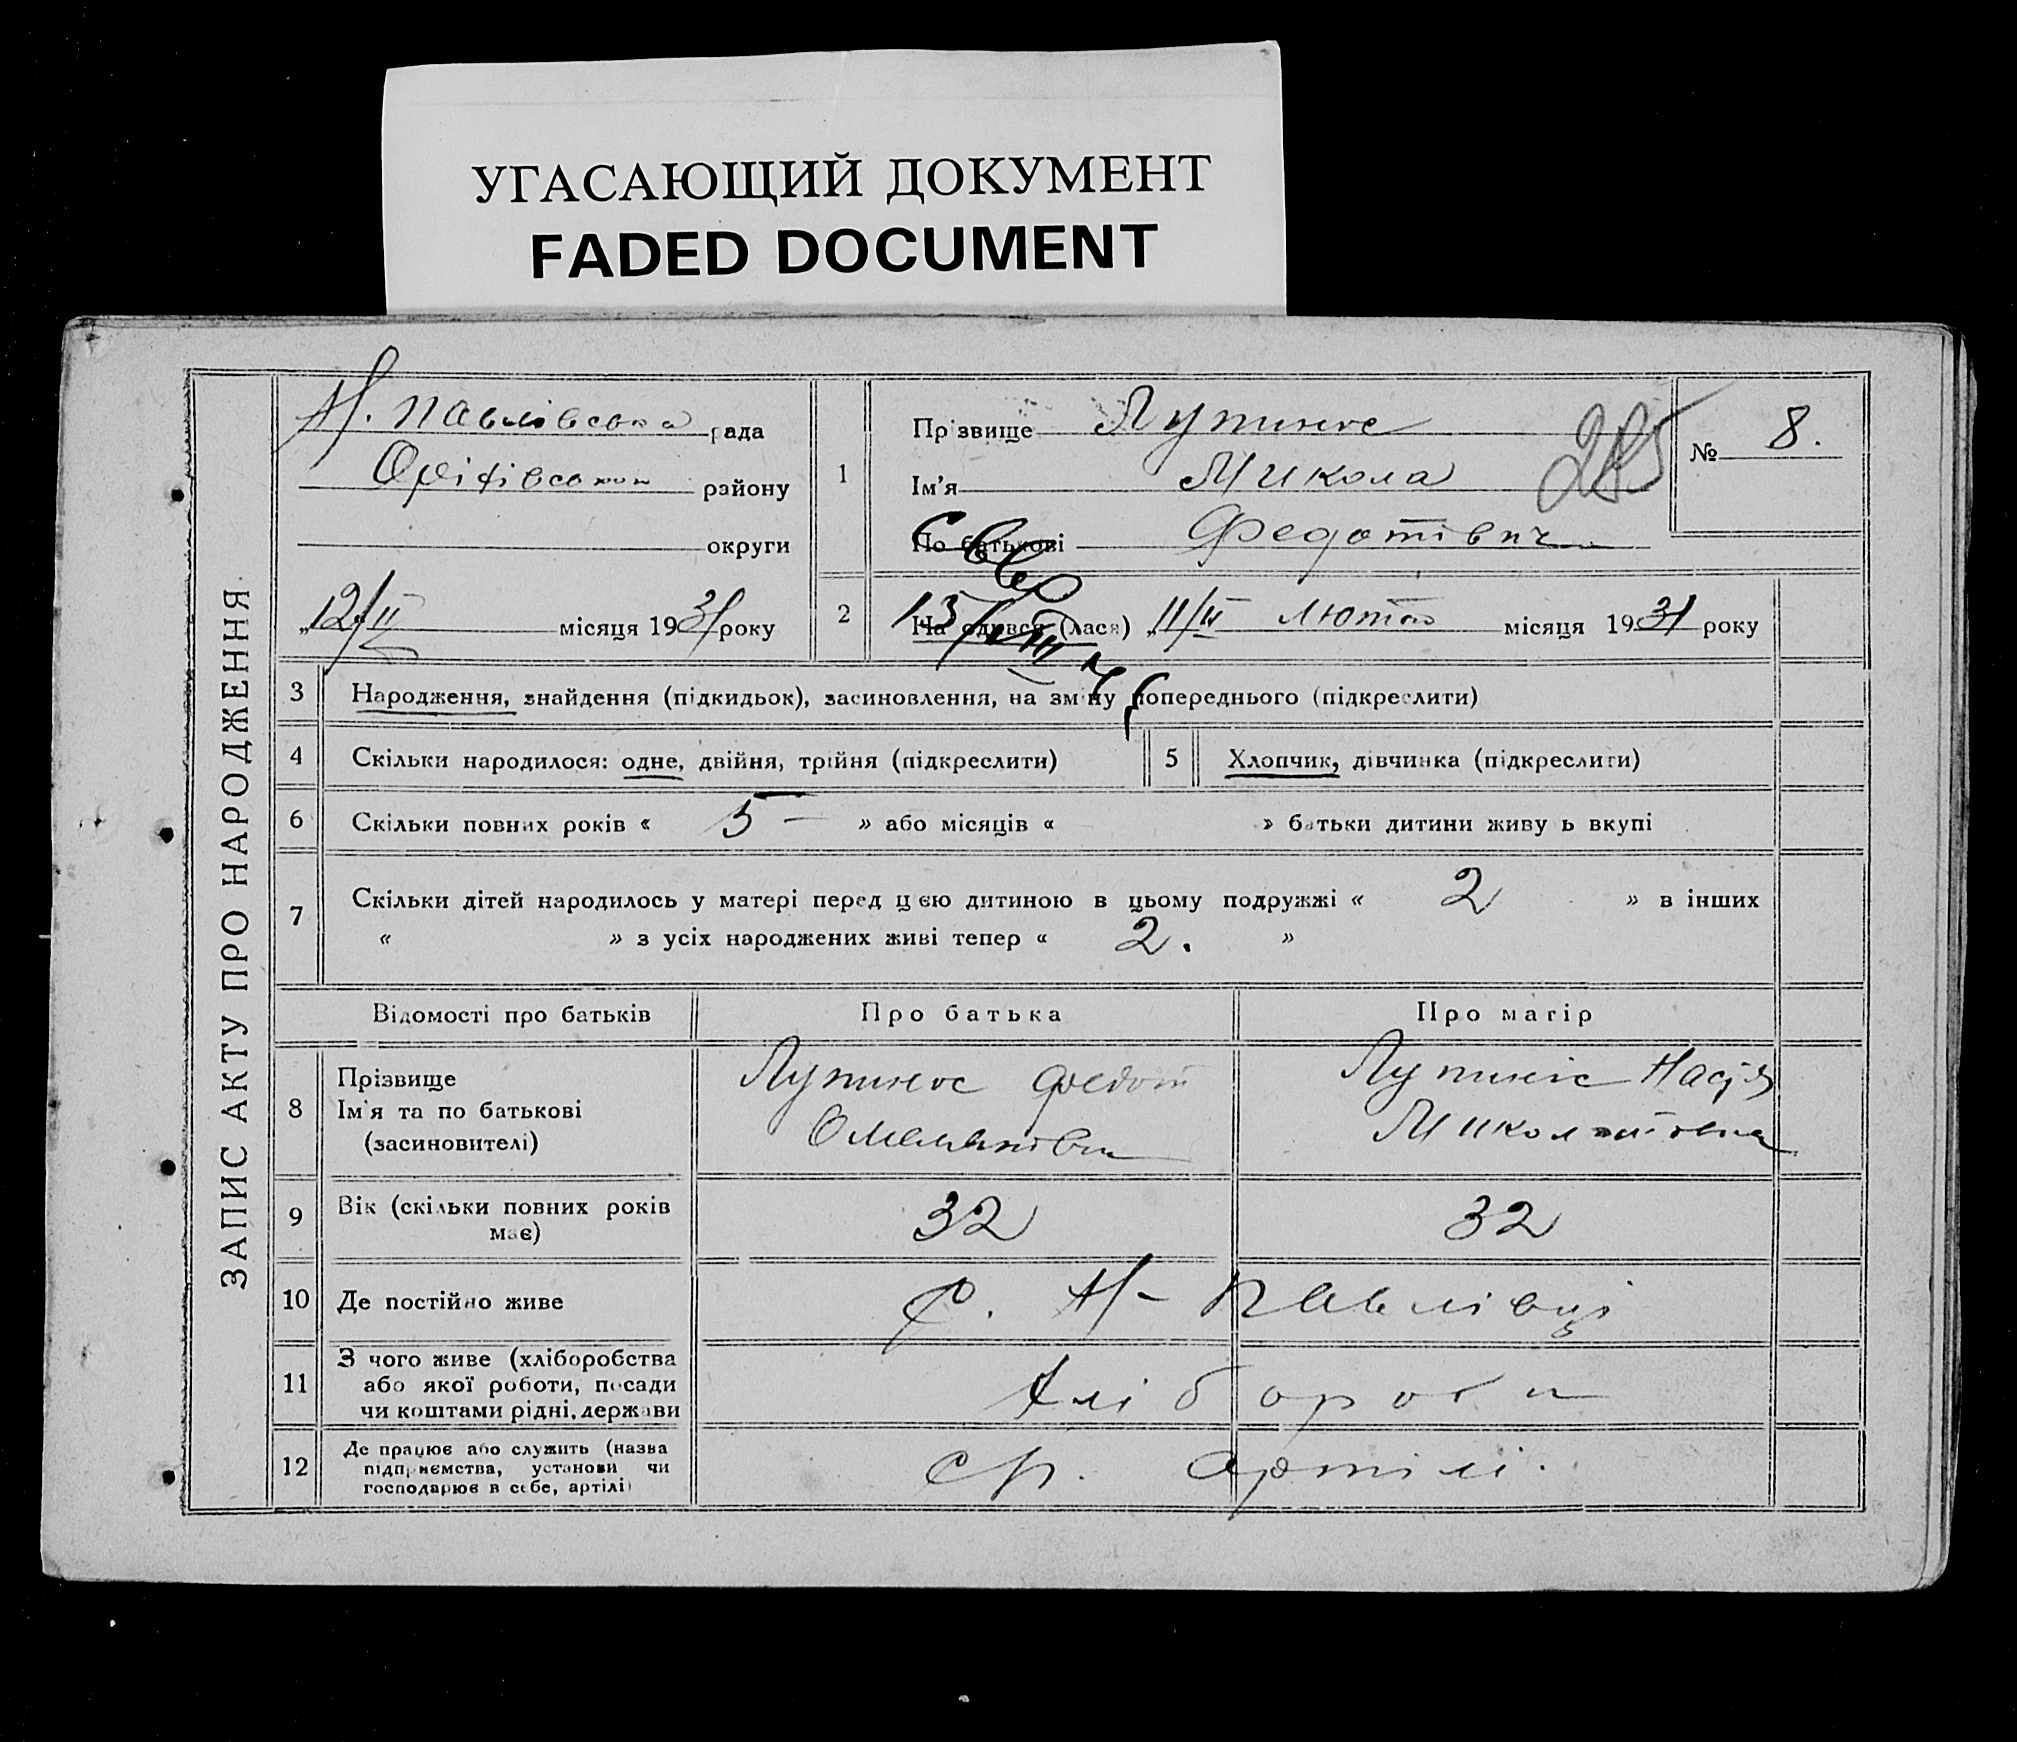 УГАСАЮЩИЙ ДОКУМЕНТ
FADED DOCUMENT
ЗАПИС АКТУ ПРО НАРОДЖЕННЯ
Н. Павлівська рада
району
округи
„12/II місяця 1931 року
1
Прізвище
Ім'я Микола
По батькові Федотівич
№ 8.
285
2
На одився (лася) „11/II лютого місяця 1931 року
3 Народження, знайдення (підкидьок), засиновлення, на зміну попереднього (підкреслити)
4 Скільки народилося: одне, двійня, трійня (підкреслити)
5 Хлопчик, дівчинка (підкреслити)
6 Скільки повних років « 5 - » або місяців « » батьки дитини живу ь вкупі
7 Скільки дітей народилось у матері перед цією дитиною в цьому подружжі « 2 » в інших
« » з усіх народжених живі тепер « 2. »
Відомості про батьків
Про батька
Про матір
8
Прізвище
Ім'я та по батькові
(засиновителі)
Федот
9
Вік (скільки повних років
має)
32
32
10 Де постійно живе
с. Н-Павлівці
11
З чого живе (хліборобства
або якої роботи, посади
чи коштами рідні, держави
хлібороби
12
Де працює або служить (назва
підприємства, установи чи
господарює в себе, артілі)
артілі.